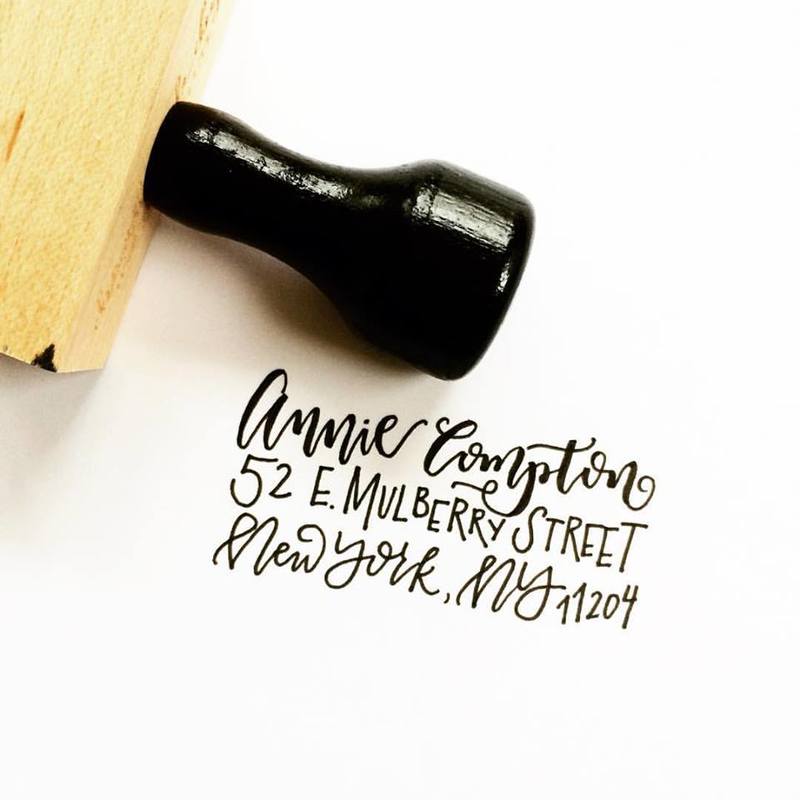 Annie Compton
52 E. MULBERRY STREET
New York, NY 11204